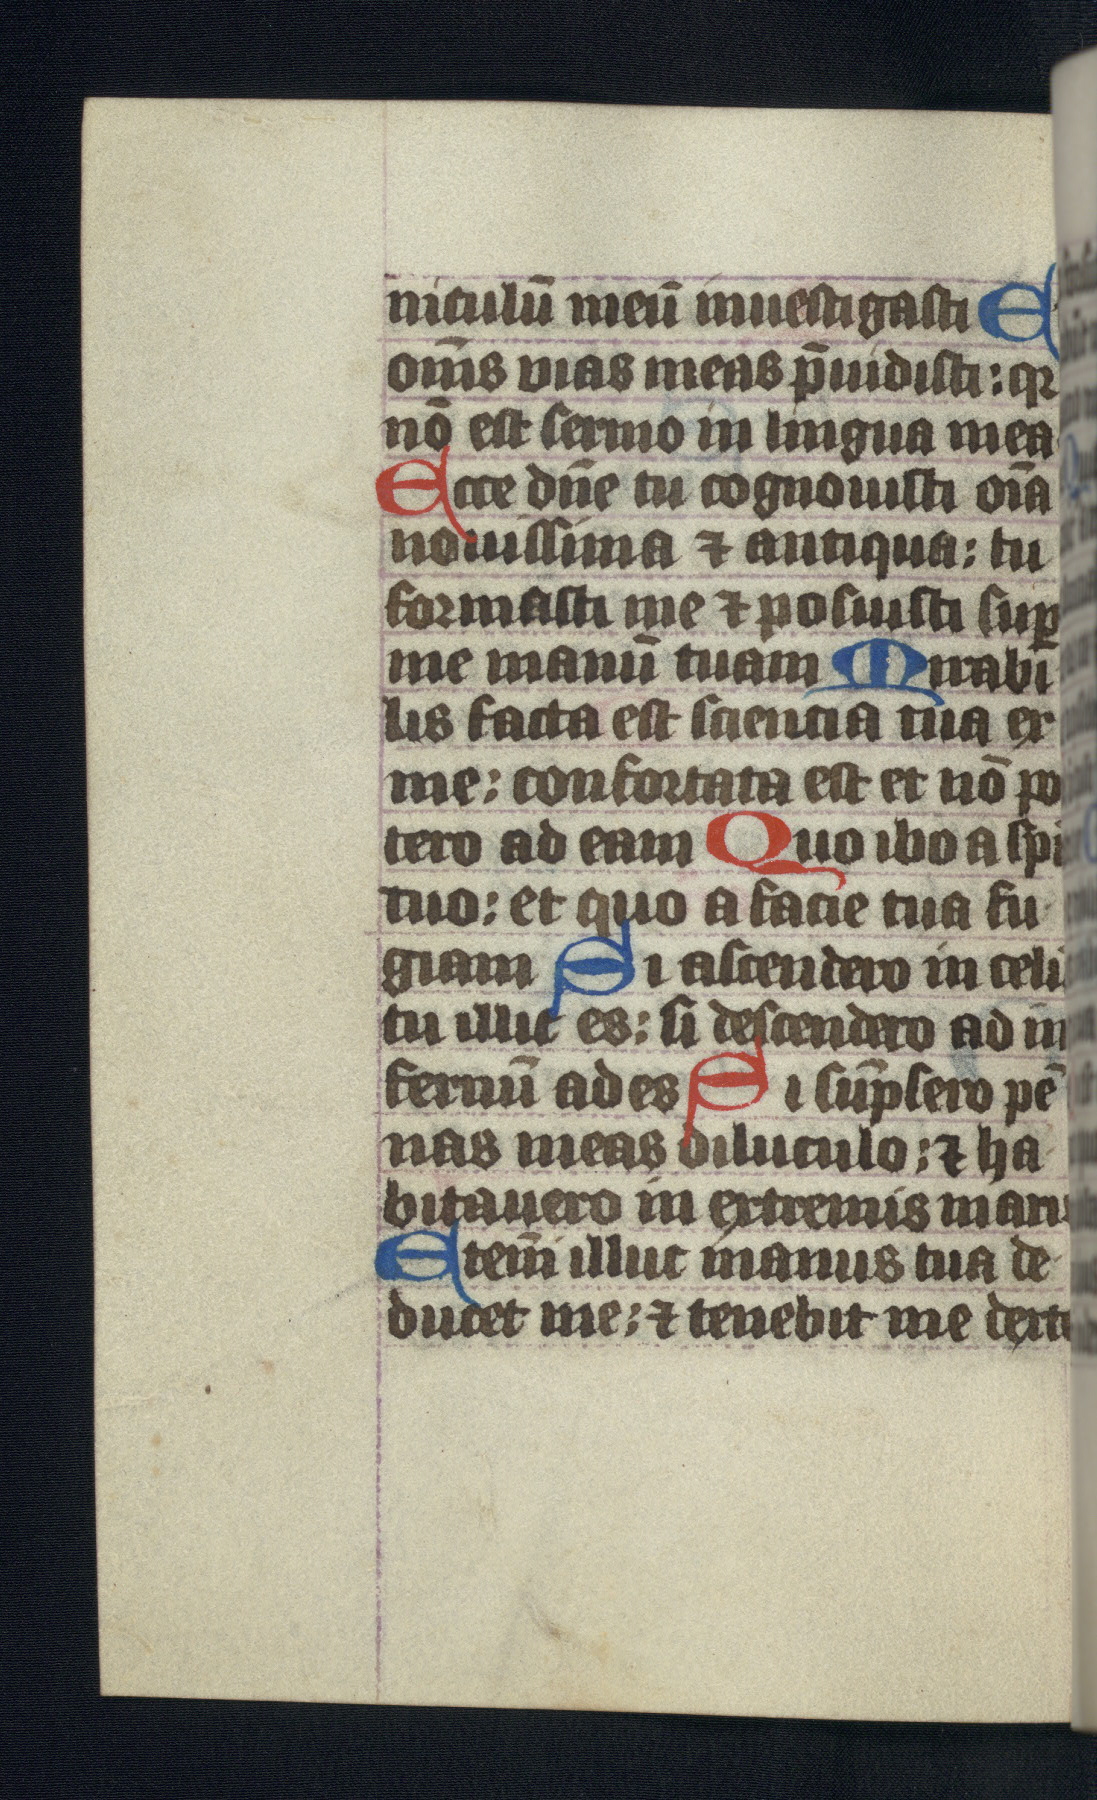 niculū meū inuestigasti E
om̄s vias meas p̄uidisti: qr
nō est sermo in lingua mea
Ecce dn̄e tu cognouisti oīa
nouissima ⁊ antiqua: tu
formasti me ⁊ posuisti suꝑ
me manū tuam Mirabi
lis facta est scientia tua ex
me: confortata est et nō po
tero ad eam Quo ibo a sp̄i
tuo: et quo a facie tua fu
giam Si ascendero in celū
tu illic es: si descendero ad in
fernū ad es Si sūpsero pē
nas meas diluculo: ⁊ ha
bitauero in extremis maris
Etem̄ illuc manus tua de
ducet me: ⁊ tenebit me dexte